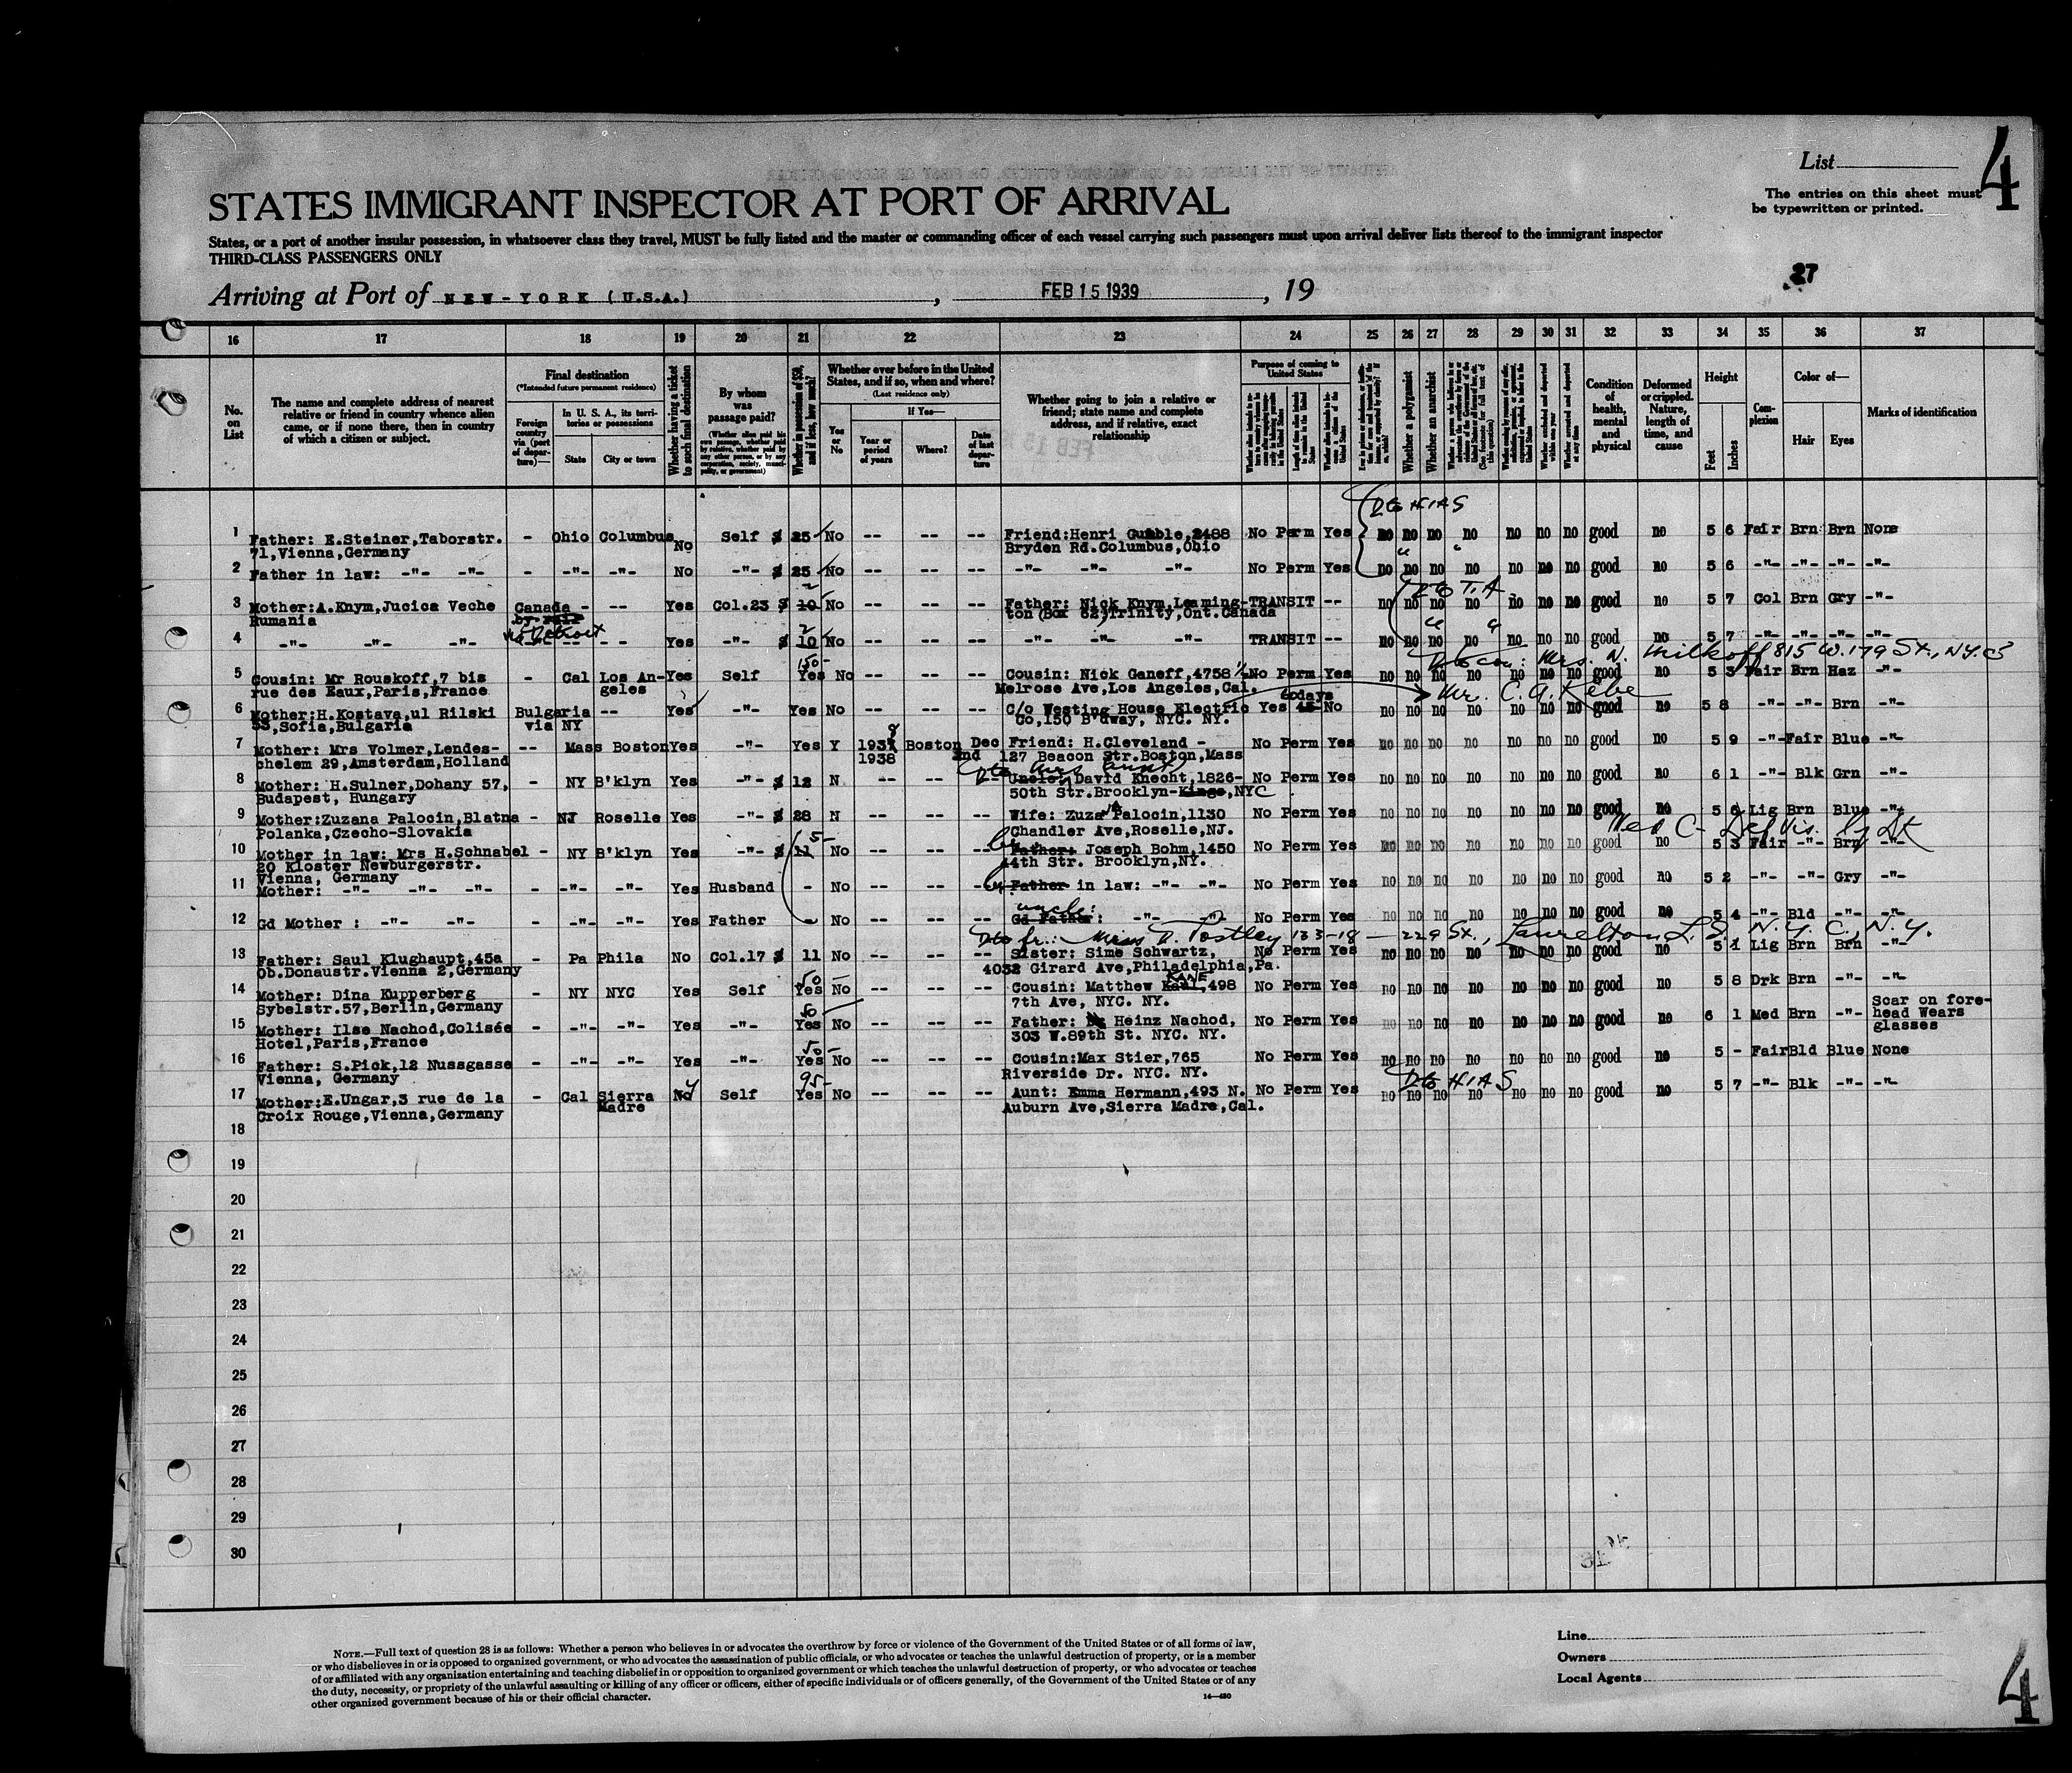 List
4
The entries on this sheet must
be typewritten or printed.
STATES IMMIGRANT INSPECTOR AT PORT OF ARRIVAL
States, or a port of another insular possession, in whatsoever class they travel, MUST be fully listed and the master or commanding officer of each vessel carrying such passengers must upon arrival deliver lists thereof to the immigrant inspector
THIRD-CLASS PASSENGERS ONLY
27
Arriving at Port of NEW-YORK (U.S.A.), FEB 15 1939, 19
16 17 18 19 20 21 22 23 24 25 26 27 28 29 30 31 32 33 34 35 36 37
No. on List
The name and complete address of nearest
relative or friend in country whence alien
came, or if none there, then in country
of which a citizen or subject.
Final destination
(*Intended future permanent residence)
Foreign country via (port of departure)—
In U. S. A., its territories or possessions
State
City or town
Whether having a ticket to such final destination
By whom was passage paid?
(Whether alien paid his own passage, whether paid by relative, whether paid by any other person, or by any corporation, society, municipality, or government)
Whether in possession of $50, and if less, how much?
Whether ever before in the United States, and if so, when and where?
(Last residence only)
Yes or No
If Yes—
Year or period of years
Where?
Date of last departure
Whether going to join a relative or
friend; state name and complete
address, and if relative, exact
relationship
Purpose of coming to United States
Whether a polygamist
Whether an anarchist
Condition of health, mental and physical
Deformed or crippled. Nature, length of time, and cause
Height
Feet
Inches
Complexion
Color of—
Hair
Eyes
Marks of identification
DtoHIAS
1 Father: E.Steiner,Taborstr. - Ohio Columbus No Self $ 25 No -- -- -- Friend:Henri Gumble,2488 No Perm Yes no no no no no no no good no 5 6 Fair Brn Brn None
71,Vienna,Germany Bryden Rd.Columbus,Ohio
2 Father in law: -"- -"- - -"- -"- No -"- $ 25 No -- -- -- -"- -"- -"- No Perm Yes no no no no no no no good no 5 6 -"- -"- -"- -"-
Dto T.A
3 Mother:A.Knym,Jucica Veche Canada - -- Yes Col.23 $ 10 No -- -- -- Father: Nick Knym,Leaming- TRANSIT -- no no no no no no no good no 5 7 Col Brn Gry -"-
Rumania by rail ton(Box 62)Trinity,Ont.Canada
via Detroit
4 -"- -"- -"- -- -- Yes -"- $ 10 No -- -- -- -"- -"- -"- TRANSIT -- no no no no no no no good no 5 7 -"- -"- -"- -"-
Mrs. N. Milkoff 815 W. 179 St., N.Y.C
5 Cousin: Mr Rouskoff,7 bis - Cal Los An- Yes Self 150- Yes No -- -- -- Cousin: Nick Ganeff,4758½ No Perm Yes no no no no no no no good no 5 3 Fair Brn Haz -"-
rue des Eaux,Paris,France geles Melrose Ave,Los Angeles,Cal.
60days Mr. C. A. Kebe
6 Mother:H.Kostava,ul Rilski Bulgaria -- Yes -"- Yes No -- -- -- C/o Westing House Electric Yes 45 No no no no no no no no good no 5 8 -"- -"- Brn -"-
53,Sofia,Bulgaria via NY Co,150 B'dway, NYC. NY.
7 Mother: Mrs Volmer,Lendes- -- Mass Boston Yes -"- Yes Y 1937 Boston Dec Friend: H.Cleveland - No Perm Yes no no no no no no no good no 5 9 -"- Fair Blue -"-
chelem 29,Amsterdam,Holland 1938 2nd 127 Beacon Str.Boston,Mass
8 Mother: H.Sulner,Dohany 57, - NY B'klyn Yes -"- $ 12 N -- -- -- Uncle: David Knecht,1826- No Perm Yes no no no no no no no good no 6 1 -"- Blk Grn -"-
Budapest, Hungary 50th Str.Brooklyn-Kings,NYC
9 Mother:Zuzana Palocin,Blatna - NJ Roselle Yes -"- $ 28 N -- -- -- Wife: Zuza Palocin,1130 No Perm Yes no no no no no no no good no 5 6 Lig Brn Blue -"-
Polanka,Czecho-Slovakia Chandler Ave,Roselle,NJ.
10 Mother in law: Mrs H.Schnabel - NY B'klyn Yes -"- $ 11 No -- -- -- Father: Joseph Bohm,1450 No Perm Yes no no no no no no no good no 5 3 Fair -"- Brn -"-
20 Kloster Newburgerstr. 44th Str. Brooklyn,NY.
Vienna, Germany
11 Mother: -"- -"- -"- - -"- -"- Yes Husband - No -- -- -- Father in law: -"- -"- No Perm Yes no no no no no no no good no 5 2 -"- -"- Gry -"-
uncle:
12 Gd Mother : -"- -"- - -"- -"- Yes Father - No -- -- -- Gd Father: -"- -"- No Perm Yes no no no no no no no good no 5 4 -"- Bld -"- -"-
Dto fr.: Miss D. Postley 133-18 — 229 St., Laurelton L. I. N.Y.C., N.Y.
13 Father: Saul Klughaupt,45a - Pa Phila No Col.17 $ 11 No -- -- -- Sister: Sime Schwartz, No Perm Yes no no no no no no no good no 5 1 Lig Brn Brn -"-
Ob.Donaustr.Vienna 2,Germany 4032 Girard Ave,Philadelphia,Pa.
KANE
14 Mother: Dina Kupperberg - NY NYC Yes Self 50 Yes No -- -- -- Cousin: Matthew Kahl,498 No Perm Yes no no no no no no no good no 5 8 Drk Brn -"- -"-
Sybelstr.57,Berlin,Germany 7th Ave, NYC. NY.
15 Mother: Ilse Nachod,Colisée - -"- -"- Yes -"- 50 Yes No -- -- -- Father: Heinz Nachod, No Perm Yes no no no no no no no good no 6 1 Med Brn -"- Scar on fore-
Hotel,Paris,France 303 W.89th St. NYC. NY. head Wears
glasses
16 Father: S.Pick,12 Nussgasse - -"- -"- Yes -"- 50- Yes No -- -- -- Cousin:Max Stier,765 No Perm Yes no no no no no no no good no 5 - Fair Bld Blue None
Vienna, Germany Riverside Dr. NYC. NY.
Dto HIAS
17 Mother:E.Ungar,3 rue de la - Cal Sierra No Self 95- Yes No -- -- -- Aunt: Emma Hermann,493 N. No Perm Yes no no no no no no no good no 5 7 -"- Blk -"- -"-
Croix Rouge,Vienna,Germany Madre Auburn Ave,Sierra Madre,Cal.
18
19
20
21
22
23
24
25
26
27
28
29
30
NOTE.—Full text of question 28 is as follows: Whether a person who believes in or advocates the overthrow by force or violence of the Government of the United States or of all forms of law,
or who disbelieves in or is opposed to organized government, or who advocates the assassination of public officials, or who advocates or teaches the unlawful destruction of property, or is a member
of or affiliated with any organization entertaining and teaching disbelief in or opposition to organized government or which teaches the unlawful destruction of property, or who advocates or teaches
the duty, necessity, or propriety of the unlawful assaulting or killing of any officer or officers, either of specific individuals or of officers generally, of the Government of the United States or of any
other organized government because of his or their official character.
14—430
Line
Owners
Local Agents
4